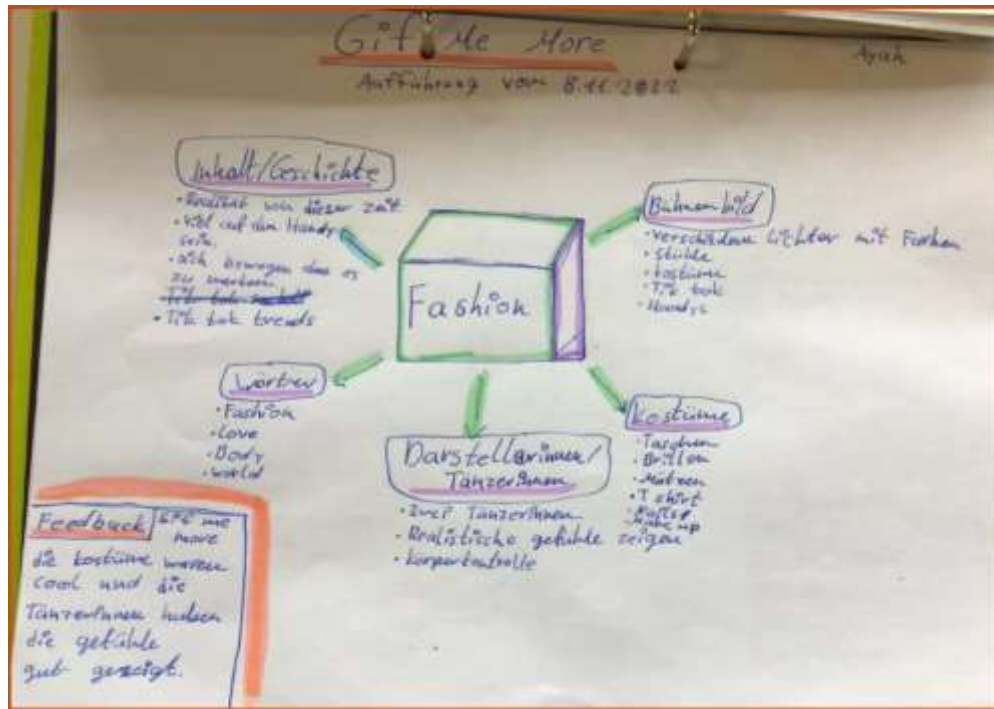 Gif Me More
Ayah
Aufführung vom 8.11.2022
Inhalt/Geschichte
• Realität von dieser zeit
• Viel auf dem Handy
sein.
• sich bewegen das es
zu merken
• Tik tok trends
Bühnenbild
• verschidene Lichter mit Farben
• Stühle
• kostüme
• Tik tok
• Handys
Fashion
Wörter
• Fashion
• Love
• Body
• World
Darstellerinnen/
TänzerInnen
• Zwei TänzerInnen
• Realistische gefühle zeigen
• körperkontrolle
Kostüme
• Taschen
• Brillen
• Mützen
• T shirt
• Make up
Feedback
Gif me
more
die kostüme waren
Cool und die
TänzerInnen haben
die gefühle
gut gezeigt.